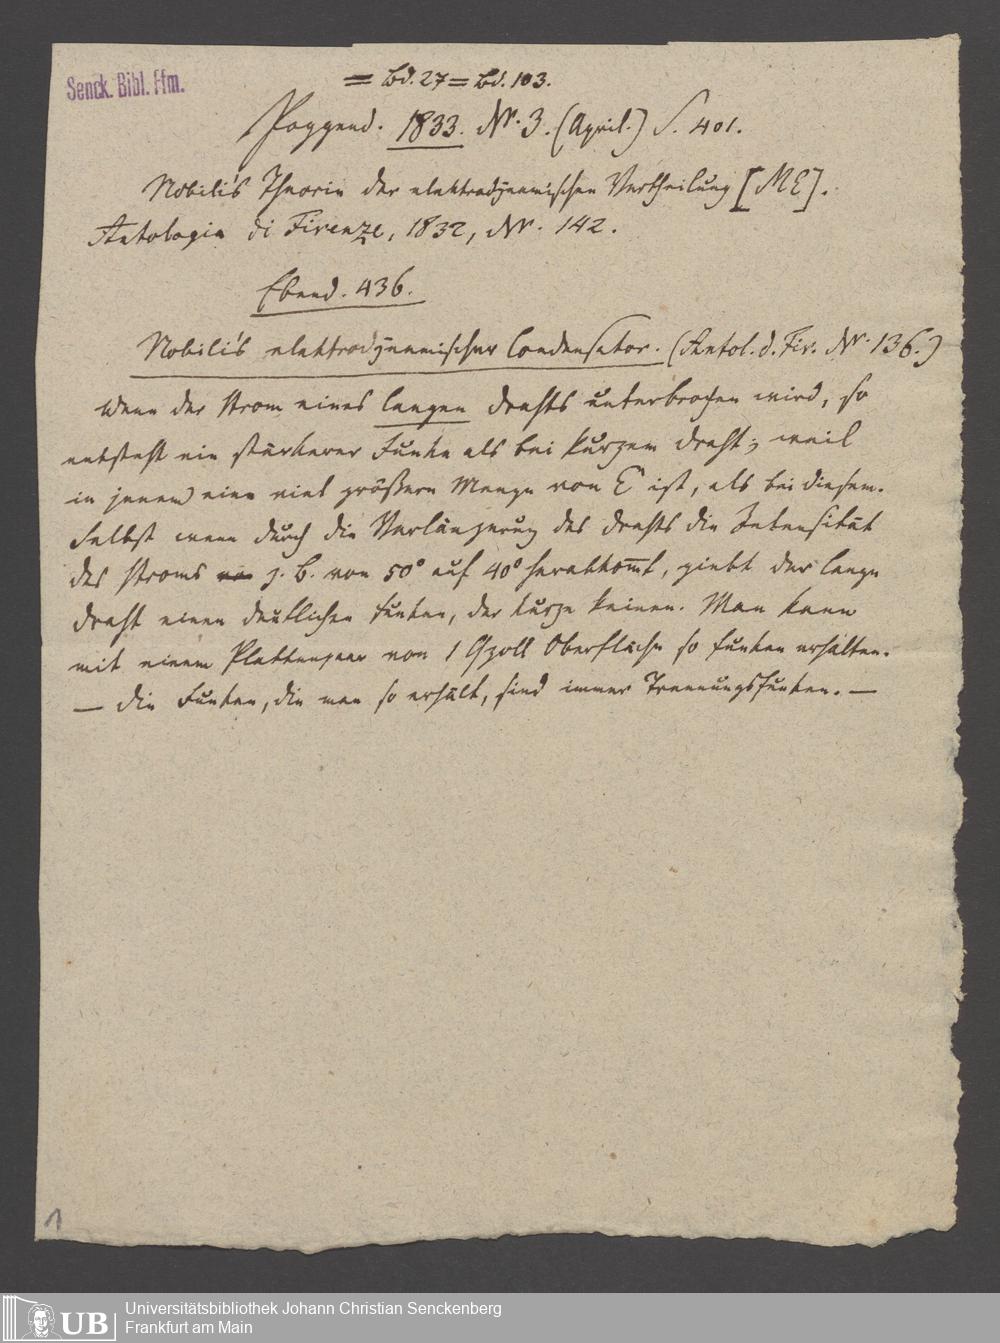 Senck. Bibl. Ffm.
= Bd. 27 = Bd. 103.
Poggend. 1833. Nr. 3. (April.) S. 401.
Nobili's Theorie der elektrodynamischen Vertheilung [ME].
Antologia di Firenze, 1832, Nr. 142.
Ebend. 436.
Nobili's elektrodynamischer Condensator. (Antol. d. Fir. Nr. 136.)
Wenn der Strom eines langen Drahts unterbrochen wird, so
entsteht ein stärkerer Funke als bei kurzem Draht; weil
in jenem eine viel größere Menge von E ist, als bei diesem.
Selbst wenn durch die Verlängerung des Drahts die Intensität
des Stroms z. B. von 50° auf 40° herabkommt, giebt der lange
Draht einen deutlichen Funken, der kurze keinen. Man kann
mit einem Plattenpaar von 1 Qzoll Oberfläche so Funken erhalten.
— Die Funken, die man so erhält, sind immer Trennungsfunken. —
1
UB
Universitätsbibliothek Johann Christian Senckenberg
Frankfurt am Main